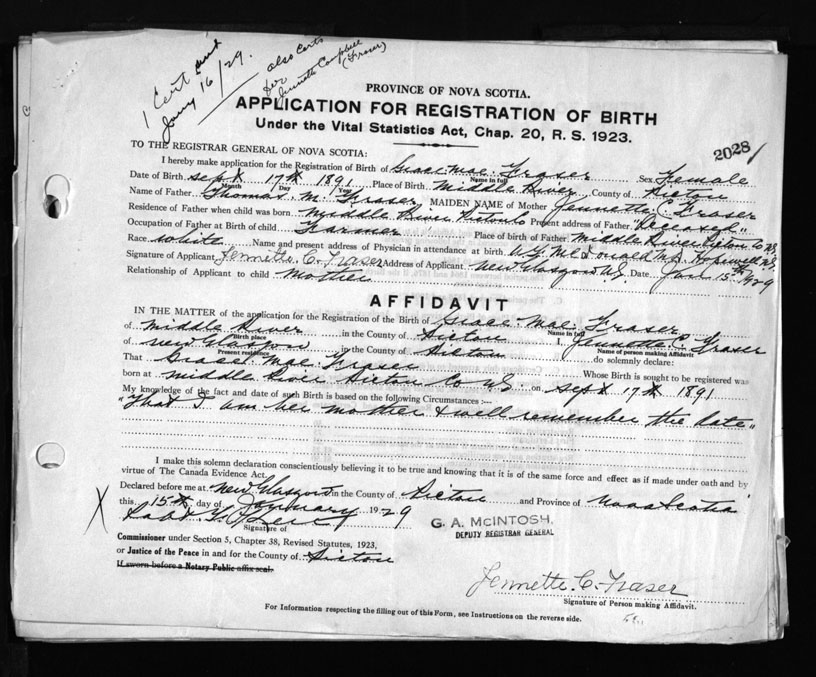 1 Cert and
Jany 16/29.
also Certs
for
Jennette Campbell
(Fraser)
PROVINCE OF NOVA SCOTIA.
APPLICATION FOR REGISTRATION OF BIRTH
Under the Vital Statistics Act, Chap. 20, R. S. 1923.
2028
TO THE REGISTRAR GENERAL OF NOVA SCOTIA:
I hereby make application for the Registration of Birth of Grace Mae Fraser Sex Female
Name in full
Date of Birth Sept 17th 1891 Place of Birth Middle River County of Pictou
Month Day Year
Name of Father Thomas M. Fraser MAIDEN NAME of Mother Jennette C. Fraser
Residence of Father when child was born Middle River Pictou Co Present address of Father "Deceased"
Occupation of Father at Birth of child Farmer Place of birth of Father Middle River Pictou Co N.S.
Race white Name and present address of Physician in attendance at birth McDonald M.D. Hopewell N.S.
Signature of Applicant Jennette C. Fraser Address of Applicant New Glasgow N.S. Date Jan 15th/1929
Relationship of Applicant to child Mother
AFFIDAVIT
IN THE MATTER of the application for the Registration of the Birth of Grace Mae Fraser
Name in full
of Middle River in the County of Pictou I, Jennette C. Fraser
Birth place Name of person making Affidavit
of New Glasgow in the County of Pictou do solemnly declare:
Present residence
That Grace Mae Fraser Whose Birth is sought to be registered was
born at Middle River Pictou Co N.S. on Sept 17th 1891
My knowledge of the fact and date of such Birth is based on the following Circumstances :—
"That I am her mother & well remember the date"
I make this solemn declaration conscientiously believing it to be true and knowing that it is of the same force and effect as if made under oath and by
virtue of The Canada Evidence Act.
Declared before me at New Glasgow in the County of Pictou and Province of Nova Scotia
this 15th day of January 1929
G. A. McINTOSH,
DEPUTY REGISTRAR GENERAL
Signature of
Commissioner under Section 5, Chapter 38, Revised Statutes, 1923,
or Justice of the Peace in and for the County of Pictou
If sworn before a Notary Public affix seal.
Jennette C. Fraser
Signature of Person making Affidavit.
For Information respecting the filling out of this Form, see Instructions on the reverse side.